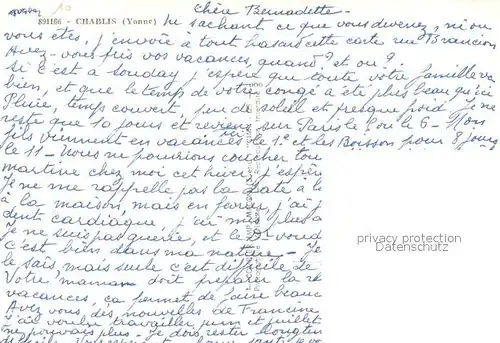 Chère Bernadette
891166 - CHABLIS (Yonne)
Ne sachant ce que vous devenez, ni ou
vous êtes, j'envoie à tout hasard cette carte rue Brancion
Avez-vous pris vos vacances, quand? et ou?
Si c'est à Souday j'espère que toute votre famille va
bien, et que le temps de votre congé a été plus beau qu'ici
Pluie, temps couvert, peu de soleil et presque froid. Je ne
reste que 10 jours et reviens sur Paris le 5 ou le 6 - Mon
fils viennent en vacances le 1° et les Boisson pour 8 jours
le 11 - Nous ne pourrions coucher tou
martine chez moi cet hiver, j'espère
Je ne me rappelle pas la date à la
à la maison, mais en février, j'ai
dent cardiaque, j'ai mis plus
Je ne suis pas guérie, et le Dr voud
c'est bien dans ma nature - Je
le sais, mais seule c'est difficile de
Votre maman doit préparer la
vacances, ça permet de faire beauc
Avez vous des nouvelles de Francine
J'ai voulu travailler juin et juillet
ne pouvais plus - Je dois rester longtem
privacy protection
Datenschutz